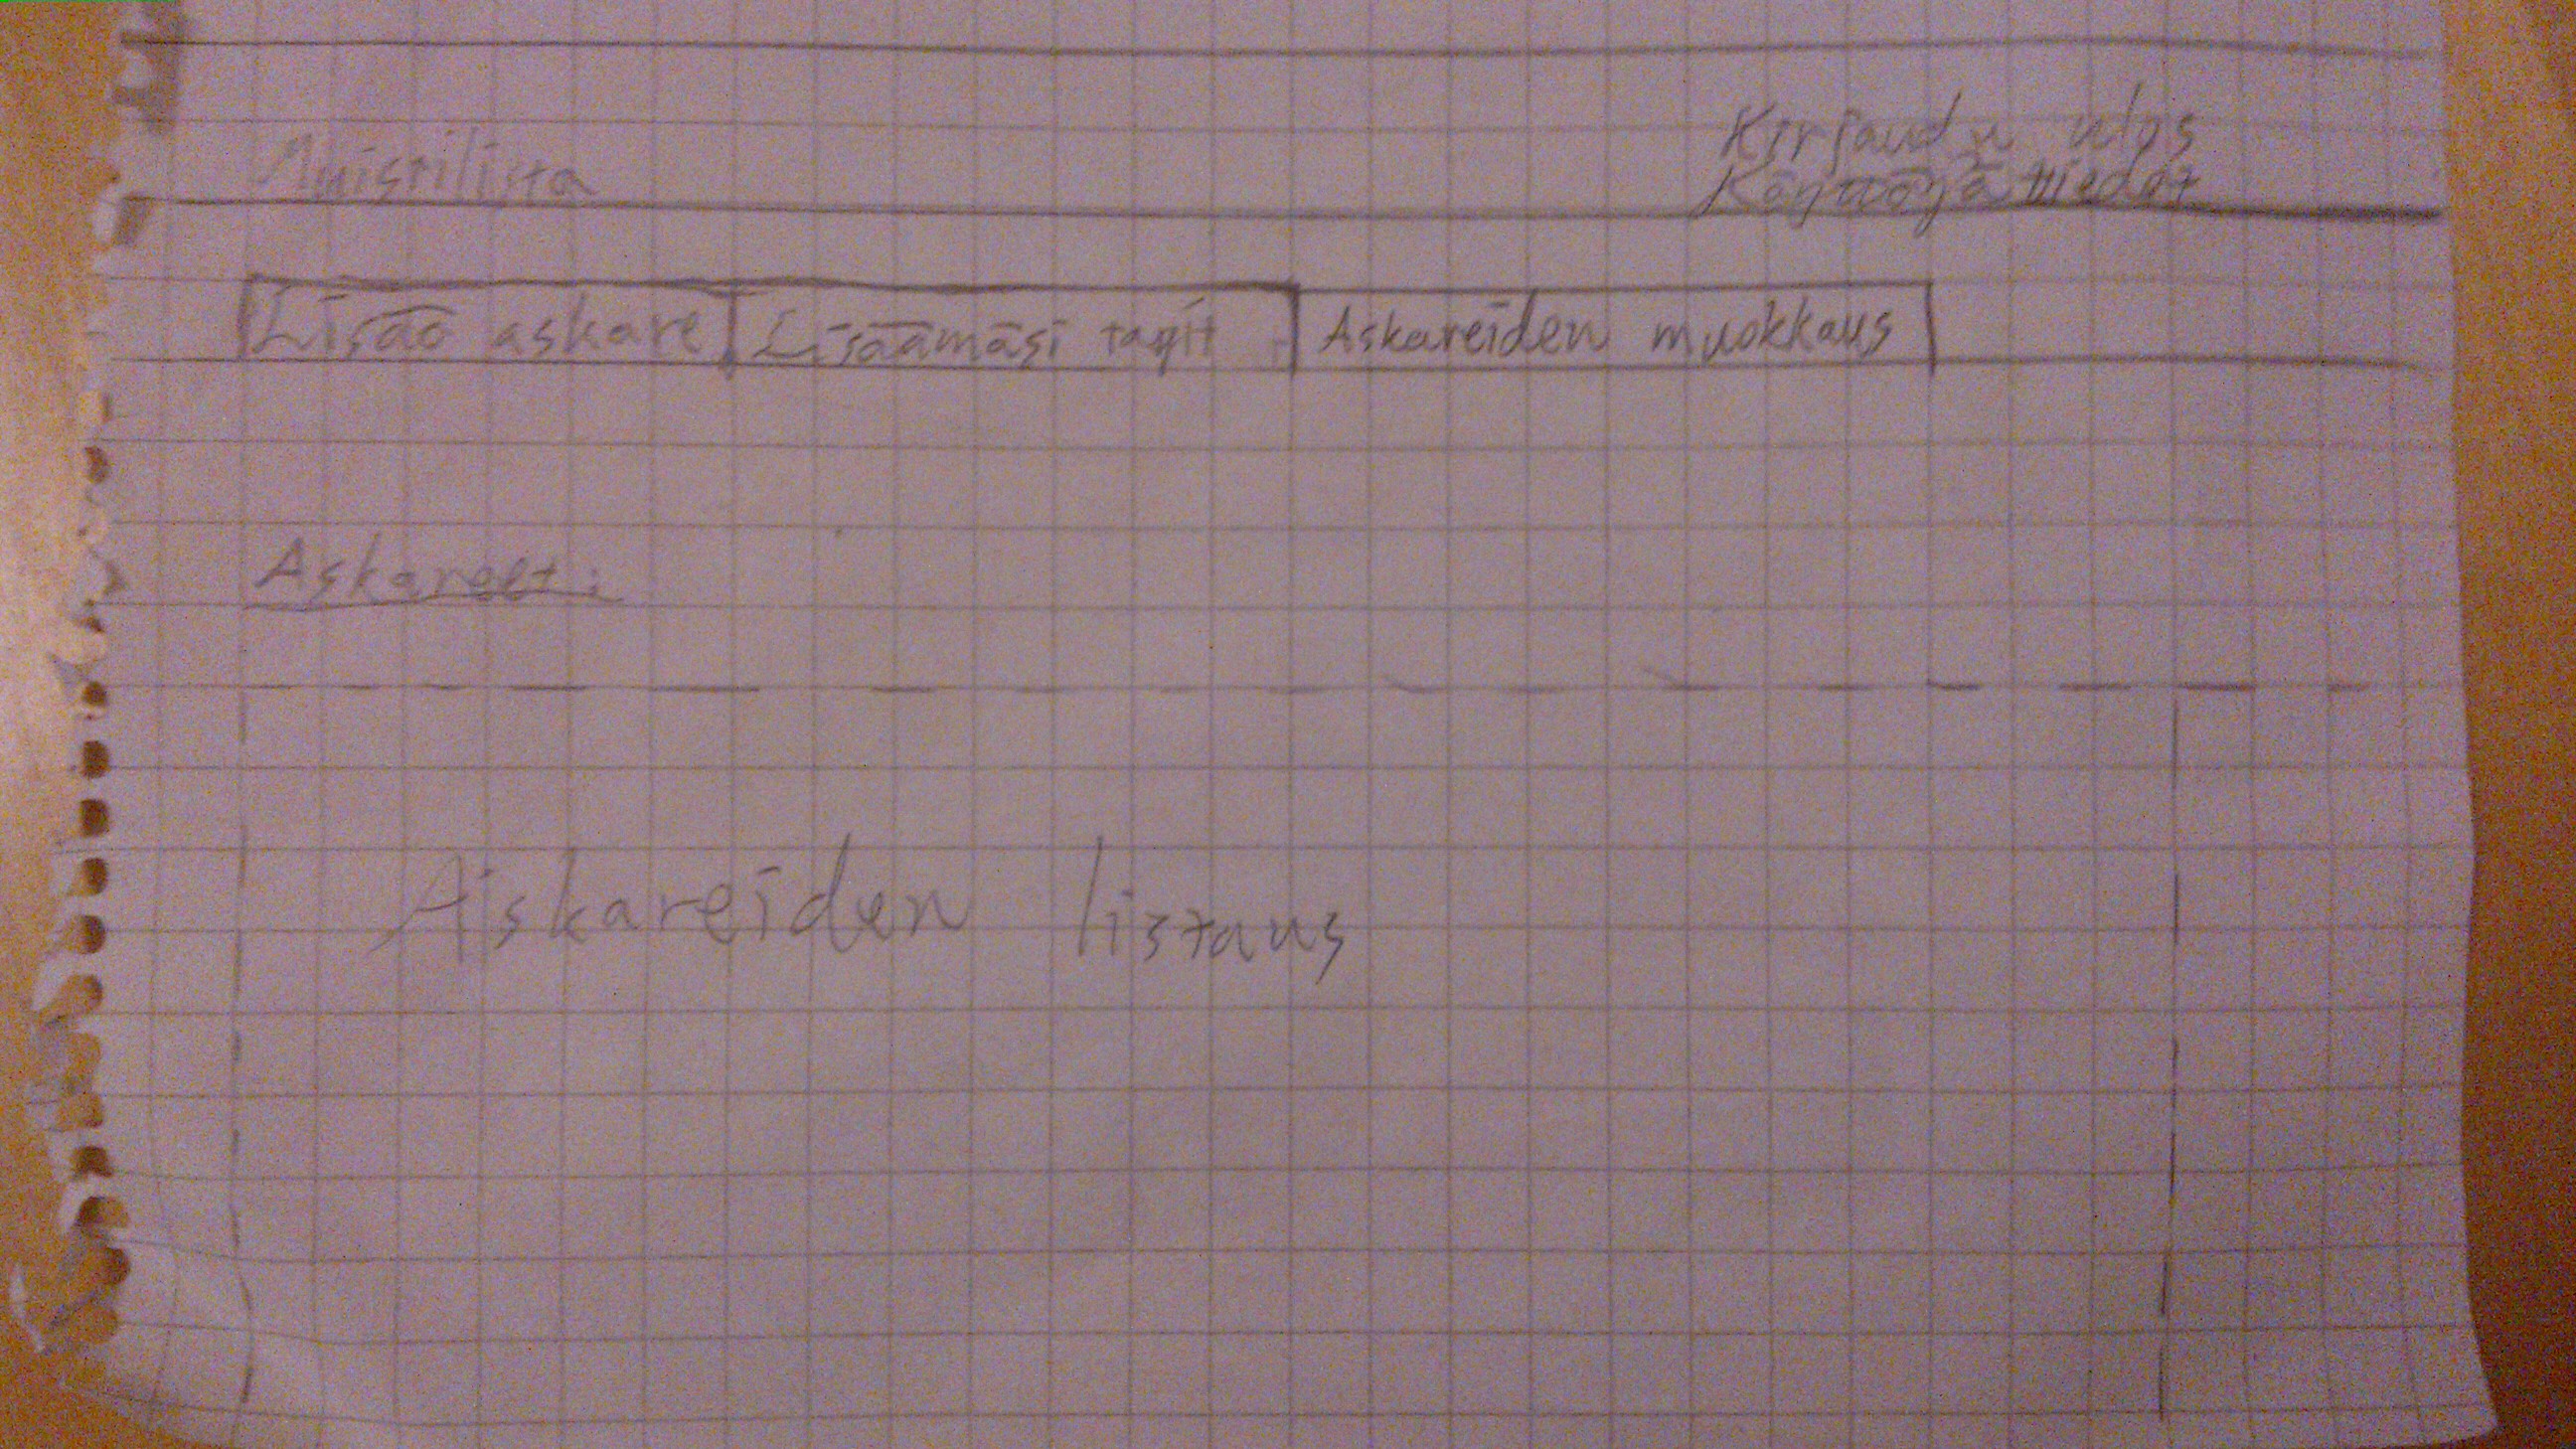 Muistilista
Kirjaudu ulos
Käyttäjätiedot
Lisää askare
Lisäämäsi tagit
Askareiden muokkaus
Askareet:
Askareiden listaus